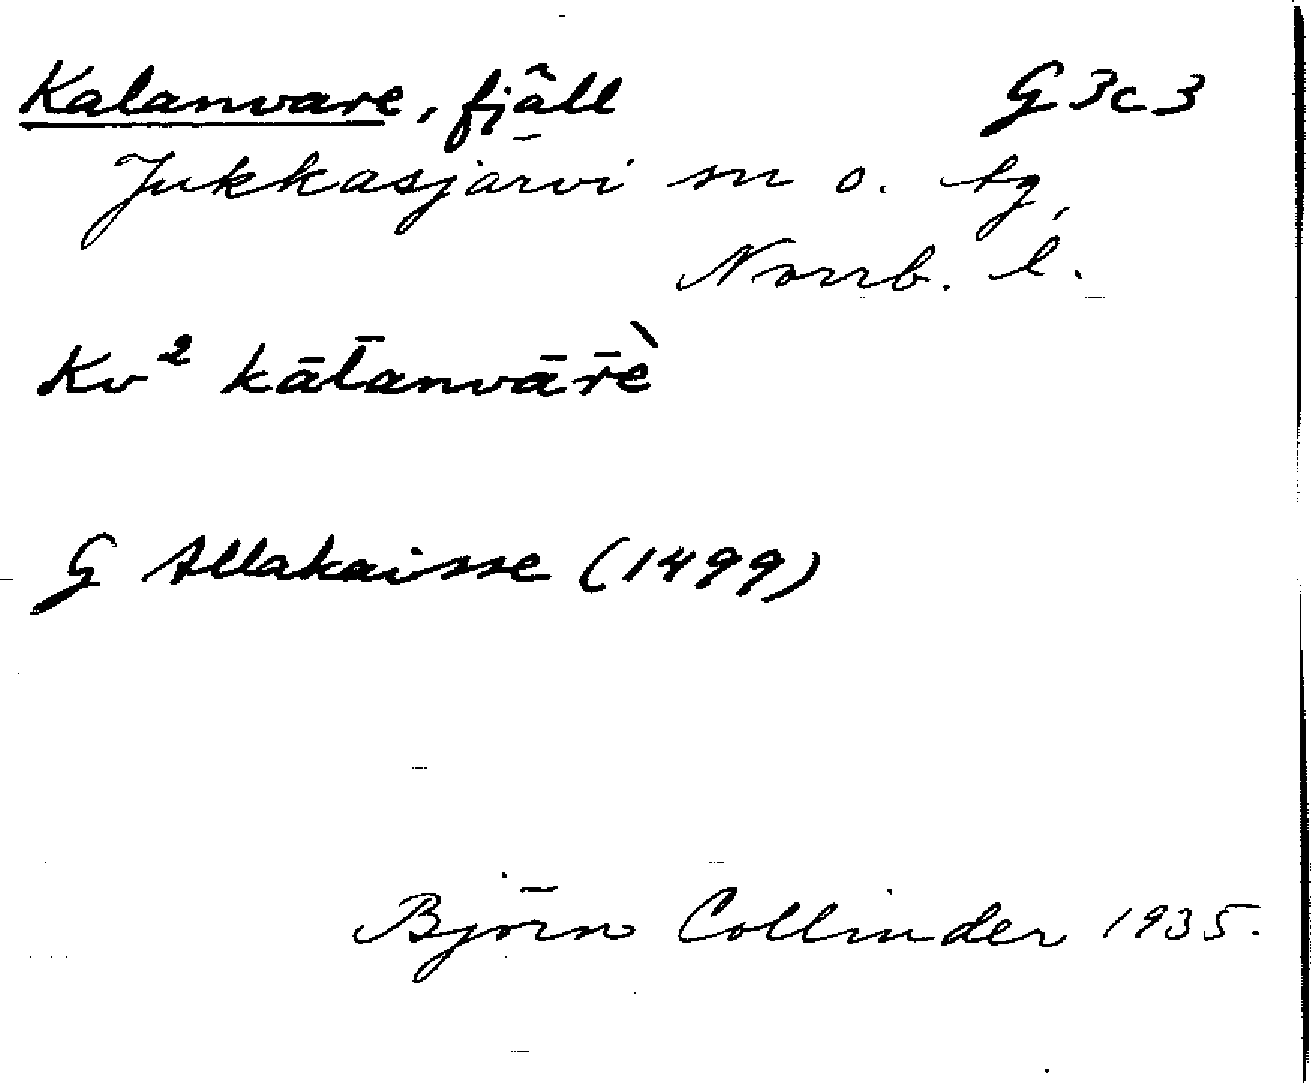 Kalanvare, fjäll G3c3
Jukkasjärvi sn o. tg,
Norrb. l.
Kv² kāl̄anvār̄è
G Allakaisse (1499)
Björn Collinder 1935.